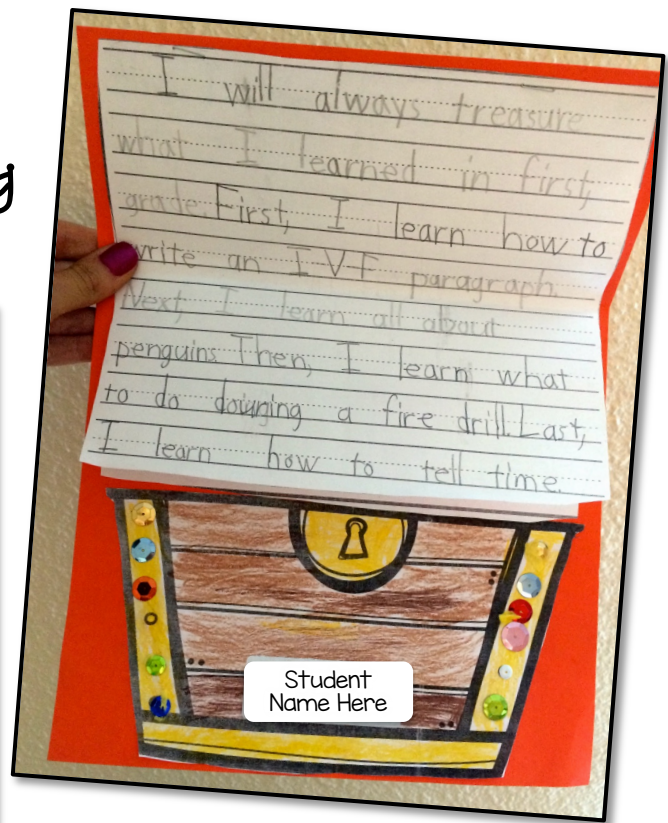 g
I will always treasure
what I learned in first
grade. First, I learn how to
write an I-V-F paragraph.
Next, I learn all about
penguins. Then, I learn what
to do a fire drill. Last,
I learn how to tell time.
Student
Name Here